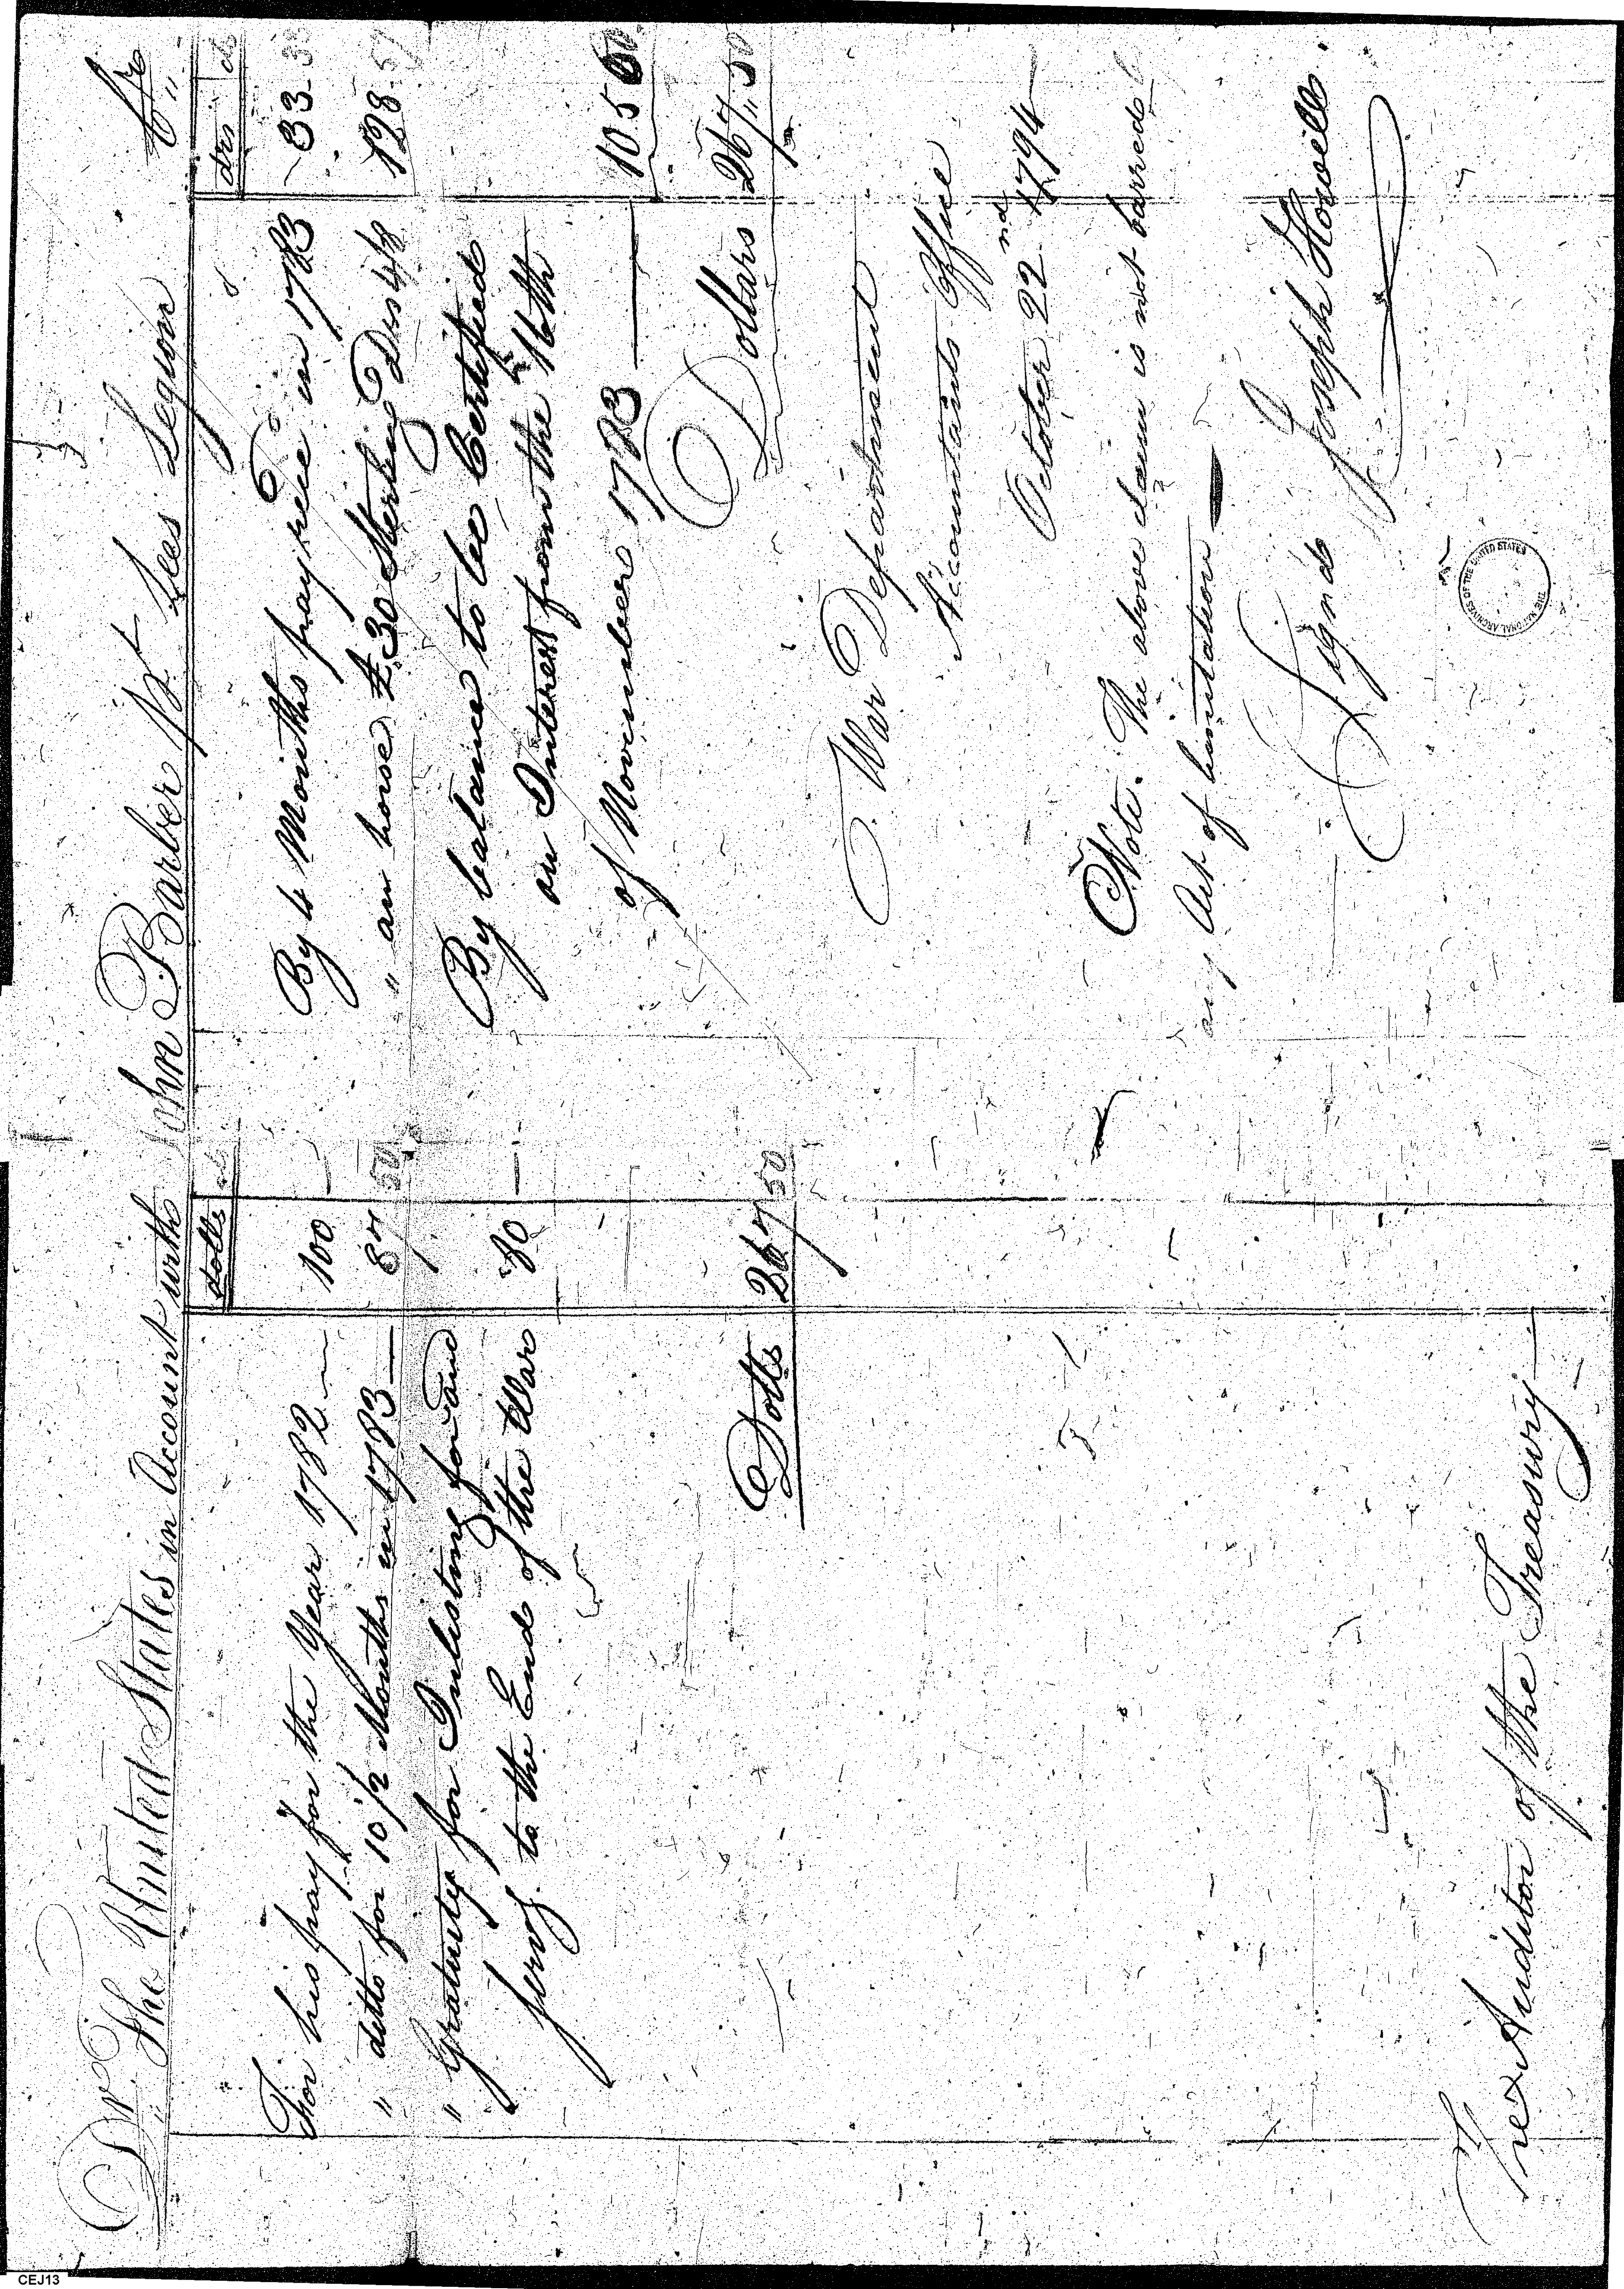 Dr. The United States in Account with John Barber pt. Lees Legion Cr
dolls
For his pay for the Year 1782 — 100 —
" ditto for 10 1/2 Months in 1783 — 87 50
" Gratuity for Inlisting for and
serv'g. to the End of the War 80 —
Dolls 267 50
drs cts
By 4 Months pay rec'd in 1783 33 33
" an horse £30 Sterling Drs 4/8 128 57
By balance to be Certified
on Interest from the 16th
of November 1783 — 105 60
Dollars 267 " 50
War Department
Accountants Office
October 22nd 1794 —
Note. The above claim is not barred by
any Act of limitation —
Signd Joseph Howell.
The Auditor of the Treasury —
THE NATIONAL ARCHIVES OF THE UNITED STATES
CEJ13